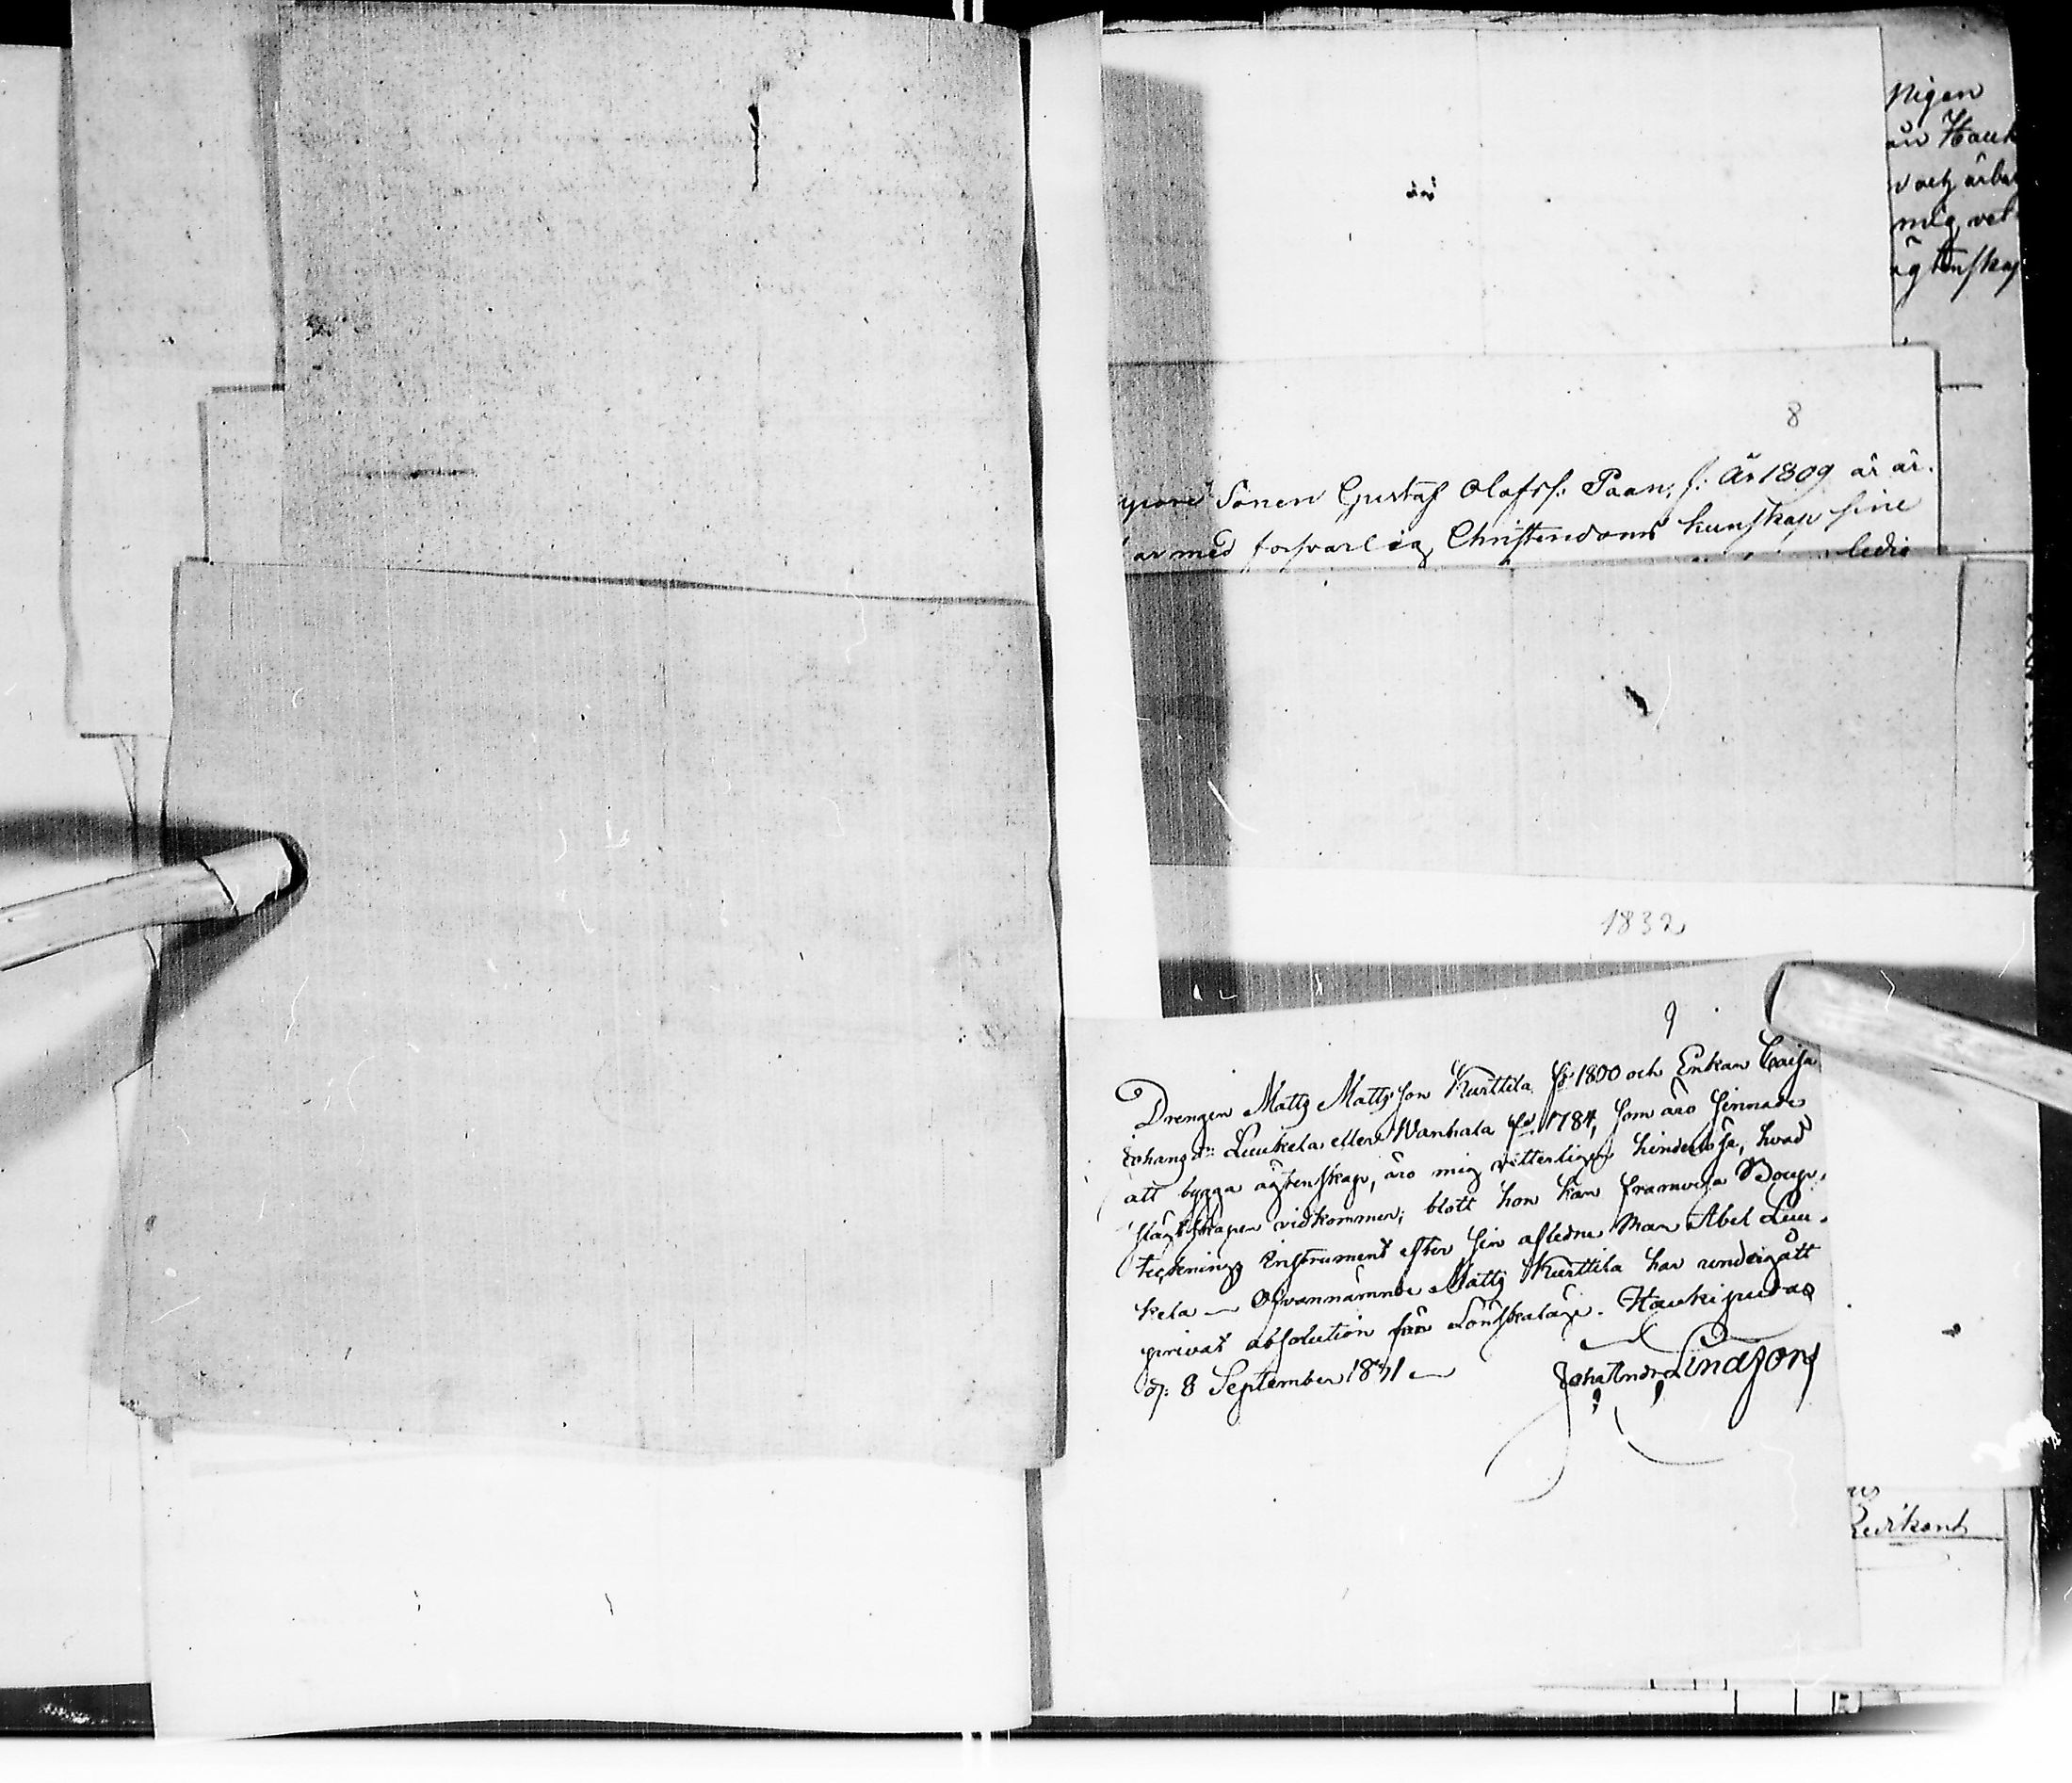 Pigen
än Hauk
mig vet
ägtenskap
8
Sonen Gustaf Olofss: Paan, f: År 1809 är är.
med forsvarlig Christendoms kunskap sine
ledig
1832
9
Drengen Matts Mattsson Kurttila fd 1800 och Enkan Caisa
Johansdr: Luukela eller Wanhala fd. 1784, som äro sinnade
att bygga ägtenskap, äro mig vitterligen hinderlösa, hvad
släktskapen vidkommer; blott hon kan framvisa Boupp-
teckningz Instrument efter sin afledne Man Abel Luu-
kela — Ofvannämnde Matts Kurttila har undergått
privat absolution från Lönskaläge. Haukipudas
d: 8 September 1831 —
Joh: Andr: Lindzon